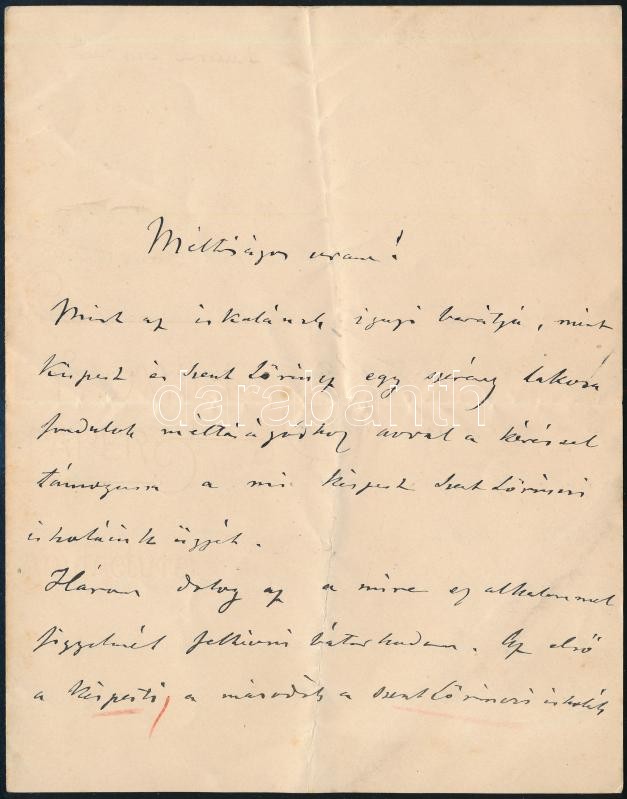 Méltóságos uram!
Mint az iskolának igazi barátja, mint
Kispest és Szent Lőrincz egy szerény lakosa
fordulok méltóságodhoz avval a kéréssel
támogassa a mi Kispest Szent Lőrinczi
iskoláink ügyét.
Három dolog az a mire ez alkalommal
figyelmét felhívni bátorkodom. Az első
a Kispesti, a második a Szent Lőrinczi iskolák
darabanth